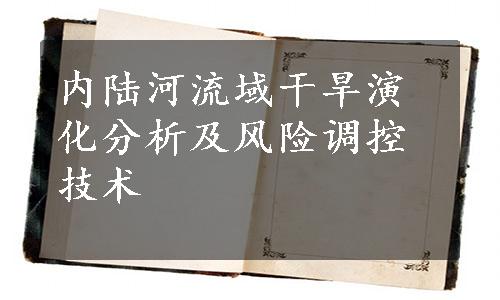 内陆河流域干旱演
化分析及风险调控
技术